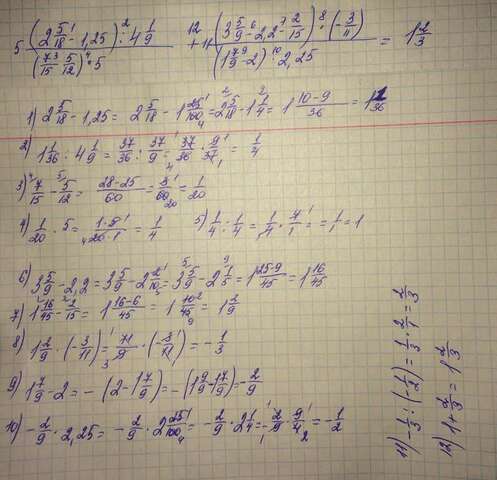 5 (2 5/18 - 1,25) : 4 1/9 / (7/15 - 5/12) · 5 + (3 5/9 - 2,2 - 2/15) · (-3/11) / (1 7/9 - 2) · 2,25 = 1 2/3
1) 2 5/18 - 1,25 = 2 5/18 - 1 25/100 = 2 5/18 - 1 1/4 = 1 10-9/36 = 1 1/36
2) 1 1/36 : 4 1/9 = 37/36 : 37/9 = 37/36 · 9/37 = 1/4
3) 7/15 - 5/12 = 28-25/60 = 3/60 = 1/20
4) 1/20 · 5 = 1·5/20·1 = 1/4 5) 1/4 : 1/4 = 1/4 · 4/1 = 1/1 = 1
6) 3 5/9 - 2,2 = 3 5/9 - 2 2/10 = 3 5/9 - 2 1/5 = 1 25-9/45 = 1 16/45
7) 1 16/45 - 2/15 = 1 16-6/45 = 1 10/45 = 1 2/9
8) 1 2/9 · (-3/11) = 11/9 · (-3/11) = -1/3
9) 1 7/9 - 2 = -(2 - 1 7/9) = -(1 9/9 - 1 7/9) = -2/9
10) -2/9 · 2,25 = -2/9 · 2 25/100 = -2/9 · 2 1/4 = -2/9 · 9/4 = -1/2
11) -1/3 : (-1/2) = 1/3 · 2/1 = 2/3
12) 1 + 2/3 = 1 2/3